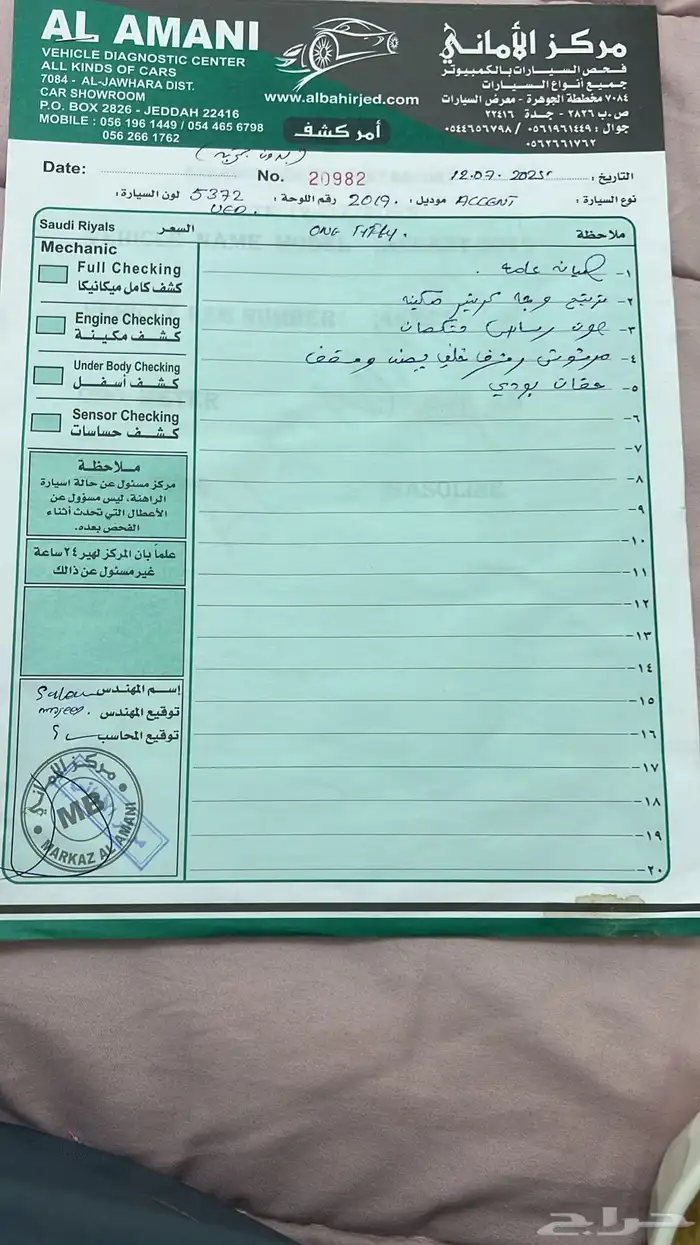 AL AMANI
VEHICLE DIAGNOSTIC CENTER
ALL KINDS OF CARS
7084 - AL-JAWHARA DIST.
CAR SHOWROOM
P.O. BOX 2826 - JEDDAH 22416
MOBILE : 056 196 1449 / 054 465 6798
056 266 1762
www.albahirjed.com
أمر كشف
مركز الأماني
فحص السيارات بالكمبيوتر
جميع أنواع السيارات
٧٠٨٤ مخططة الجوهرة - معرض السيارات
ص.ب ٢٨٢٦ - جدة ٢٢٤١٦
جوال : ٠٥٦١٩٦١٤٤٩ / ٠٥٤٤٦٥٦٧٩٨
٠٥٦٢٦٦١٧٦٢
Date: No. 20982 التاريخ : 12.07.2025
نوع السيارة : ACCENT موديل : 2019. رقم اللوحة : 5372 لون السيارة :
UED.
Saudi Riyals السعر ملاحظة
Mechanic
Full Checking
كشف كامل ميكانيكا
Engine Checking
كشف مكينة
Under Body Checking
كشف أسفل
Sensor Checking
كشف حساسات
ملاحظة
مركز مسئول عن حالة اسيارة
الراهنة، ليس مسؤول عن
الأعطال التي تحدث أثناء
الفحص بعده.
علماً بان المركز لهير ٢٤ ساعة
غير مسئول عن ذالك
إسم المهندس
توقيع المهندس
توقيع المحاسب
١- صيانه عامه .
٢- وجه كرتير مكينه
٣-
٤- خلفي
٥- بودي
٦-
٧-
٨-
٩-
١٠-
١١-
١٢-
١٣-
١٤-
١٥-
١٦-
١٧-
١٨-
١٩-
٢٠-
مركز الأماني
MB
MARKAZ AL AMANI
حراج